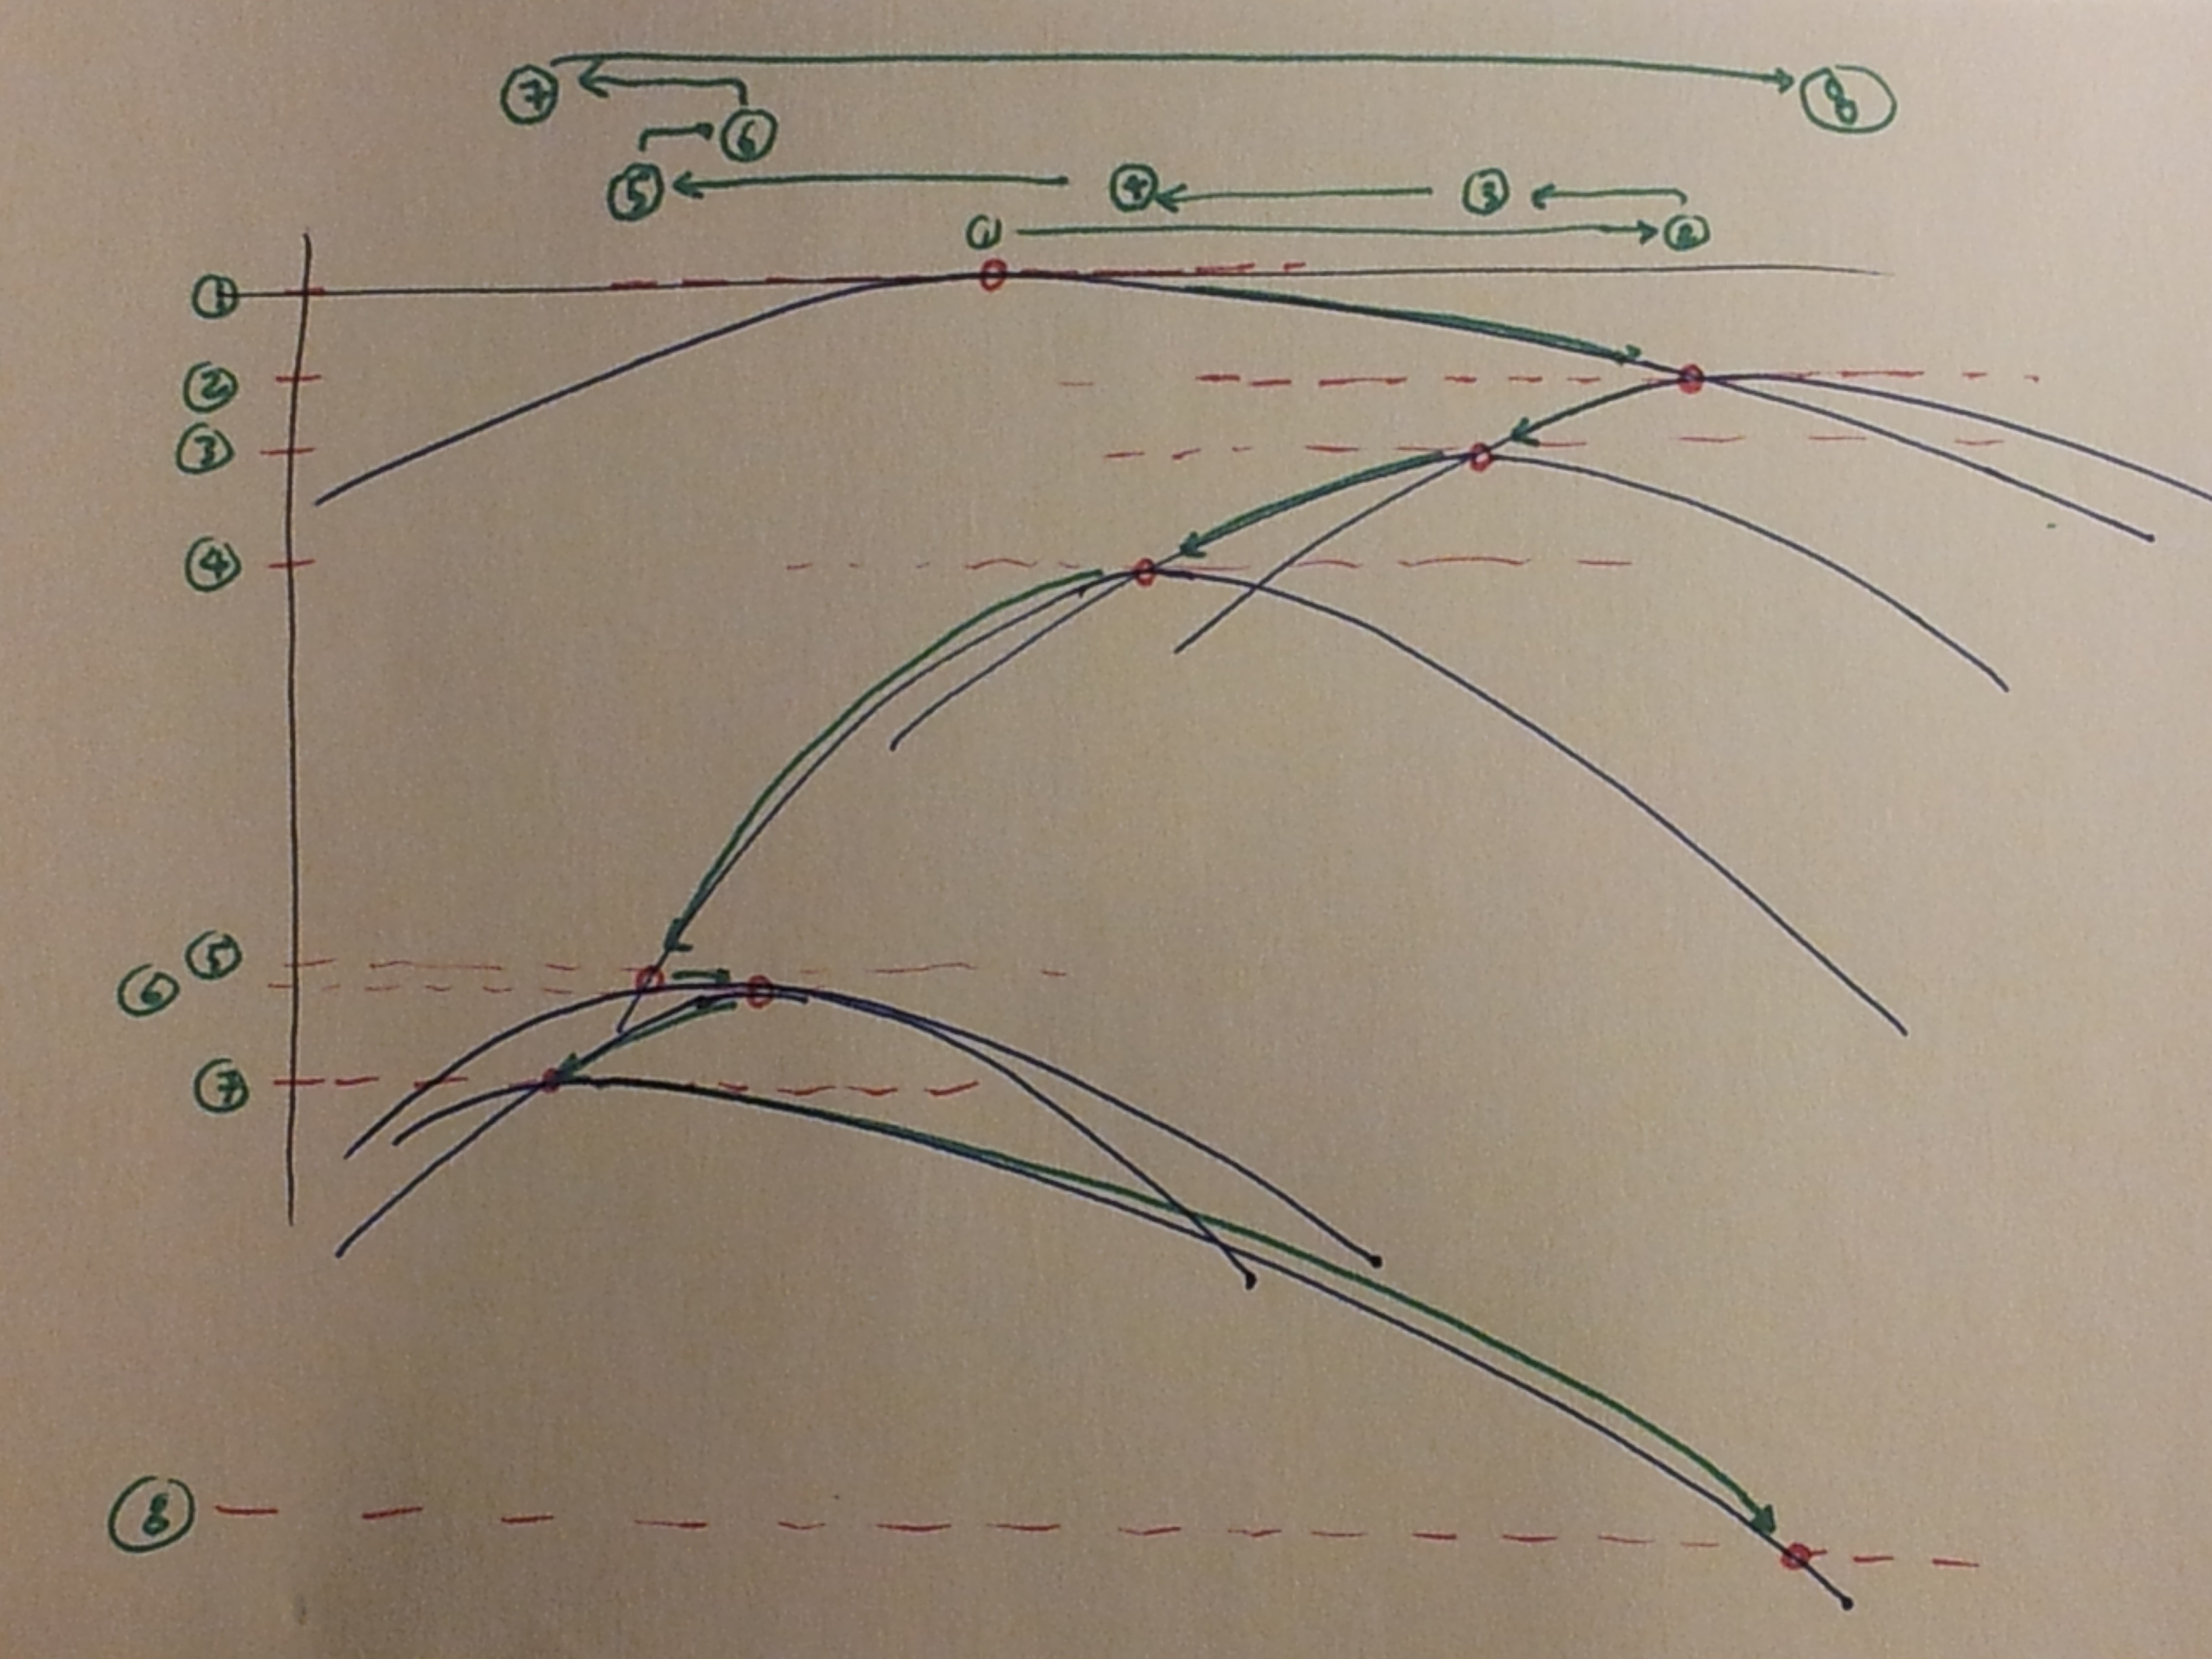 ⑦ ⑧
⑥
⑤ ④ ③
① ②
①
②
③
④
⑤
⑥
⑦
⑧